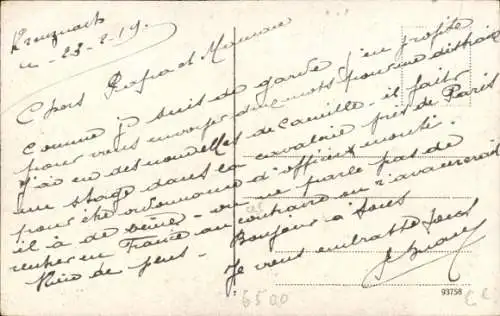 Kreuznach
le 23-2-19.
Chers Papa et Maman
Comme je suis de garde j'en profite
pour vous envoyer deux mots pour me distraire
J'ai eu des nouvelles de Camille - il fait
un stage dans la cavalerie près de Paris
pour être ordonnance d'officier monté.
il a de veine - on ne parle pas de
rentrer en France au contraire on n'avancerait
Rien de plus - Bonjour à tous
Je vous embrasse tous
6500
93758